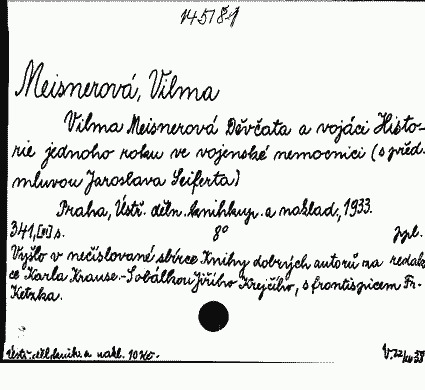 145/81
Meisnerová, Vilma
Vilma Meisnerová Děvčata a vojáci Histo-
rie jednoho roku ve vojenské nemocnici (s před-
mluvou Jaroslava Seiferta)
Praha, Ústř. děln. knihkup. a naklad., 1933.
341, s. 8°
Vyšlo v nečíslované sbírce Knihy dobrých autorů za redak-
ce Karla Krause.-S obálkou Jiřího Krejčího, s frontispicem Fr.
Ketzka.
Ústř. děl. knih. a nakl. 10 Kč.